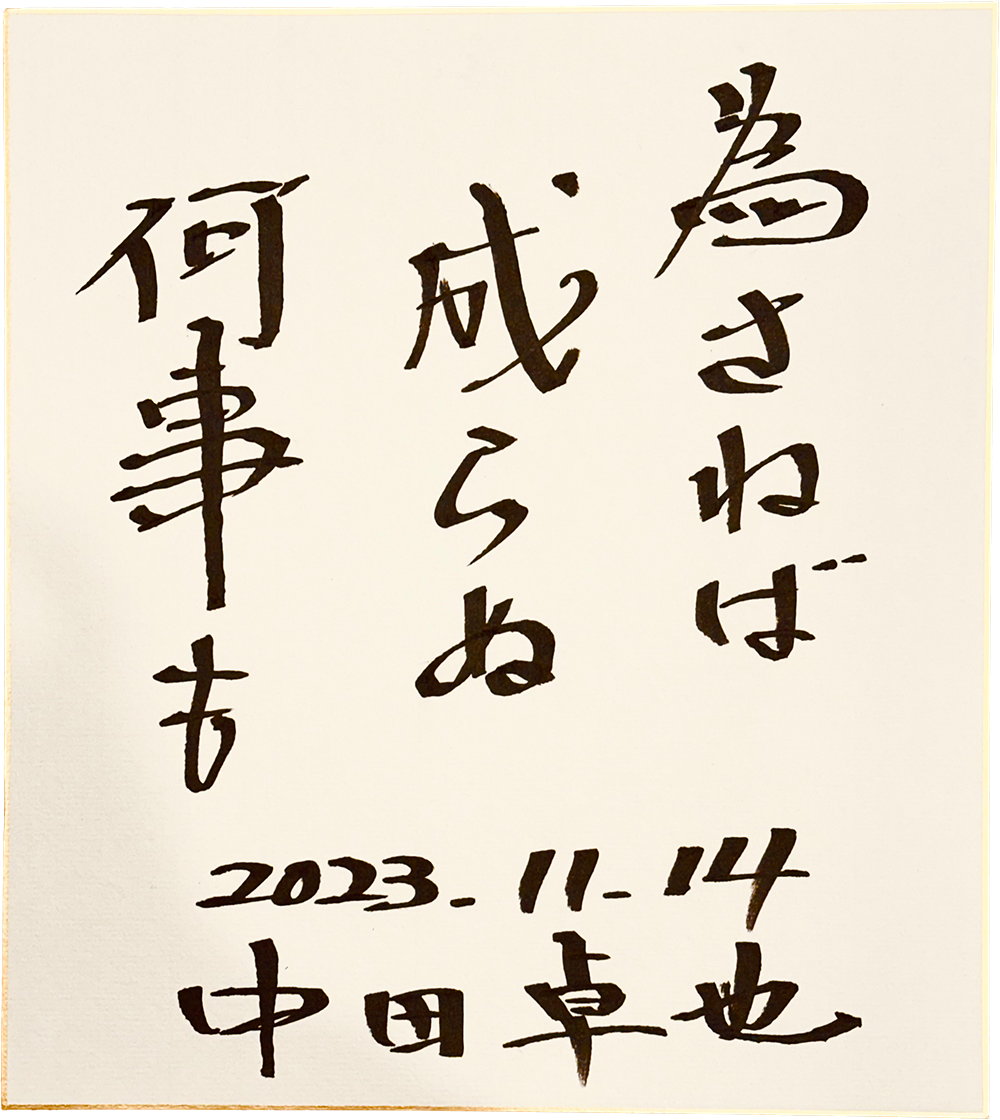 為さねば
成らぬ
何事も
2023-11-14
中田卓也